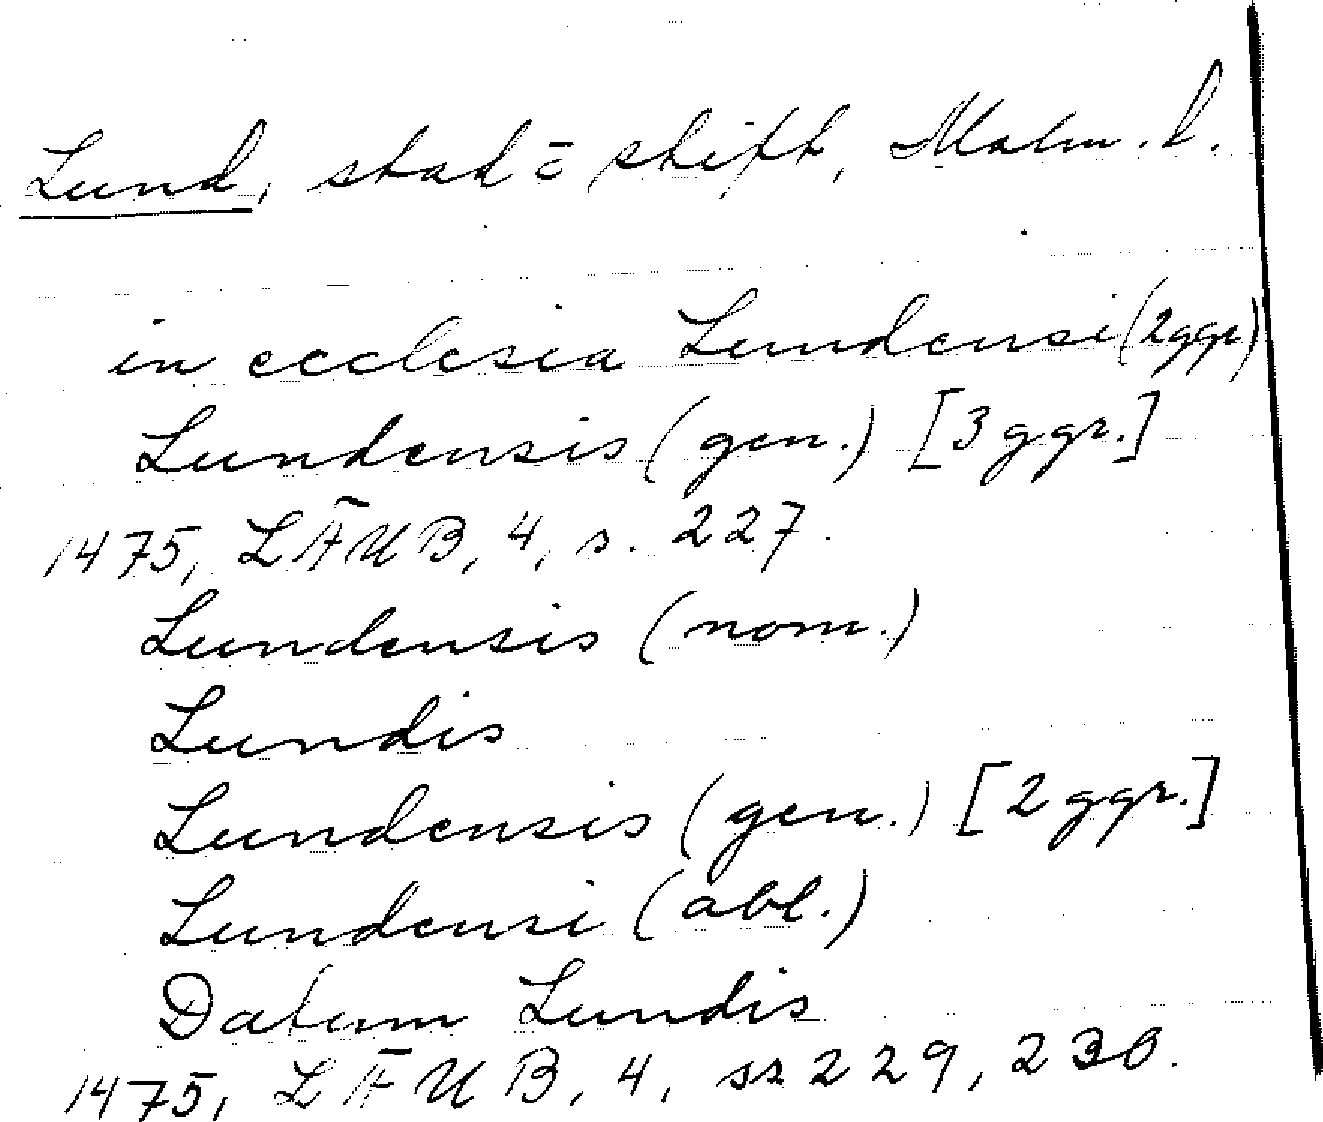 Lund, stad = stift, Malm. l.
in ecclesia Lundensi (2ggr)
Lundensis (gen.) [3 ggr.]
1475, LÄUB, 4, s. 227.
Lundensis (nom.)
Lundis
Lundensis (gen.) [2 ggr.]
Lundensi (abl.)
Datum Lundis
1475, LÄUB, 4, ss 229, 230.